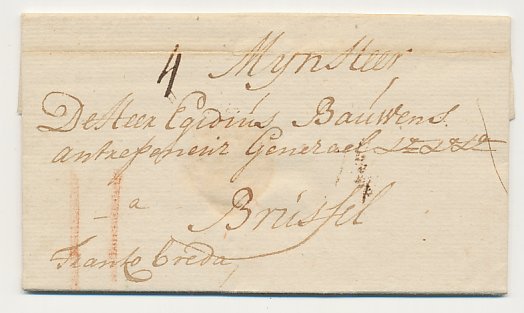 4
Mijn Heer
De Heer Egidius Bauwens
antrepeneur Generael
a
Brussel
Franko Breda